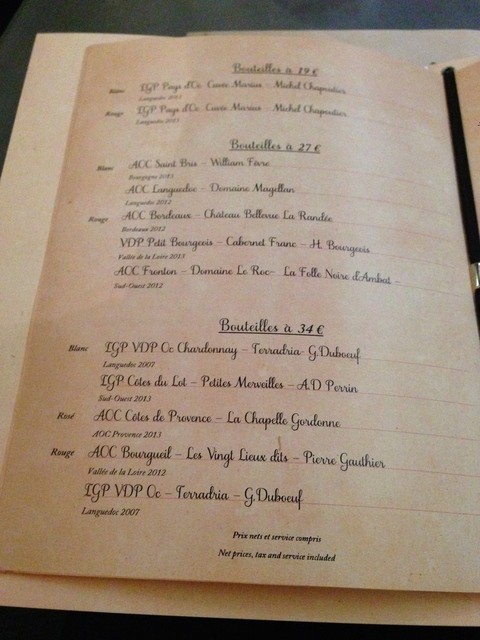 Bouteilles à 19 €
Blanc IGP Pays d'Oc Cuvée Marius - Michel Chapoutier
Languedoc 2013
Rouge IGP Pays d'Oc Cuvée Marius - Michel Chapoutier
Languedoc 2013
Bouteilles à 27 €
Blanc AOC Saint Bris - William Fèvre
Bourgogne 2013
AOC Languedoc - Domaine Magellan
Languedoc 2012
Rouge AOC Bordeaux - Château Bellevue La Randée
Bordeaux 2012
VDP Petit Bourgeois - Cabernet Franc - H. Bourgeois
Vallée de la Loire 2013
AOC Fronton - Domaine Le Roc- La Folle Noire d'Ambat -
Sud-Ouest 2012
Bouteilles à 34 €
Blanc IGP VDP Oc Chardonnay - Terradria- G.Duboeuf
Languedoc 2007
IGP Côtes du Lot - Petites Merveilles - A.D Perrin
Sud-Ouest 2013
Rosé AOC Côtes de Provence - La Chapelle Gordonne
AOC Provence 2013
Rouge AOC Bourgueil - Les Vingt Lieux dits - Pierre Gauthier
Vallée de la Loire 2012
IGP VDP Oc - Terradria - G.Duboeuf
Languedoc 2007
Prix nets et service compris
Net prices, tax and service included